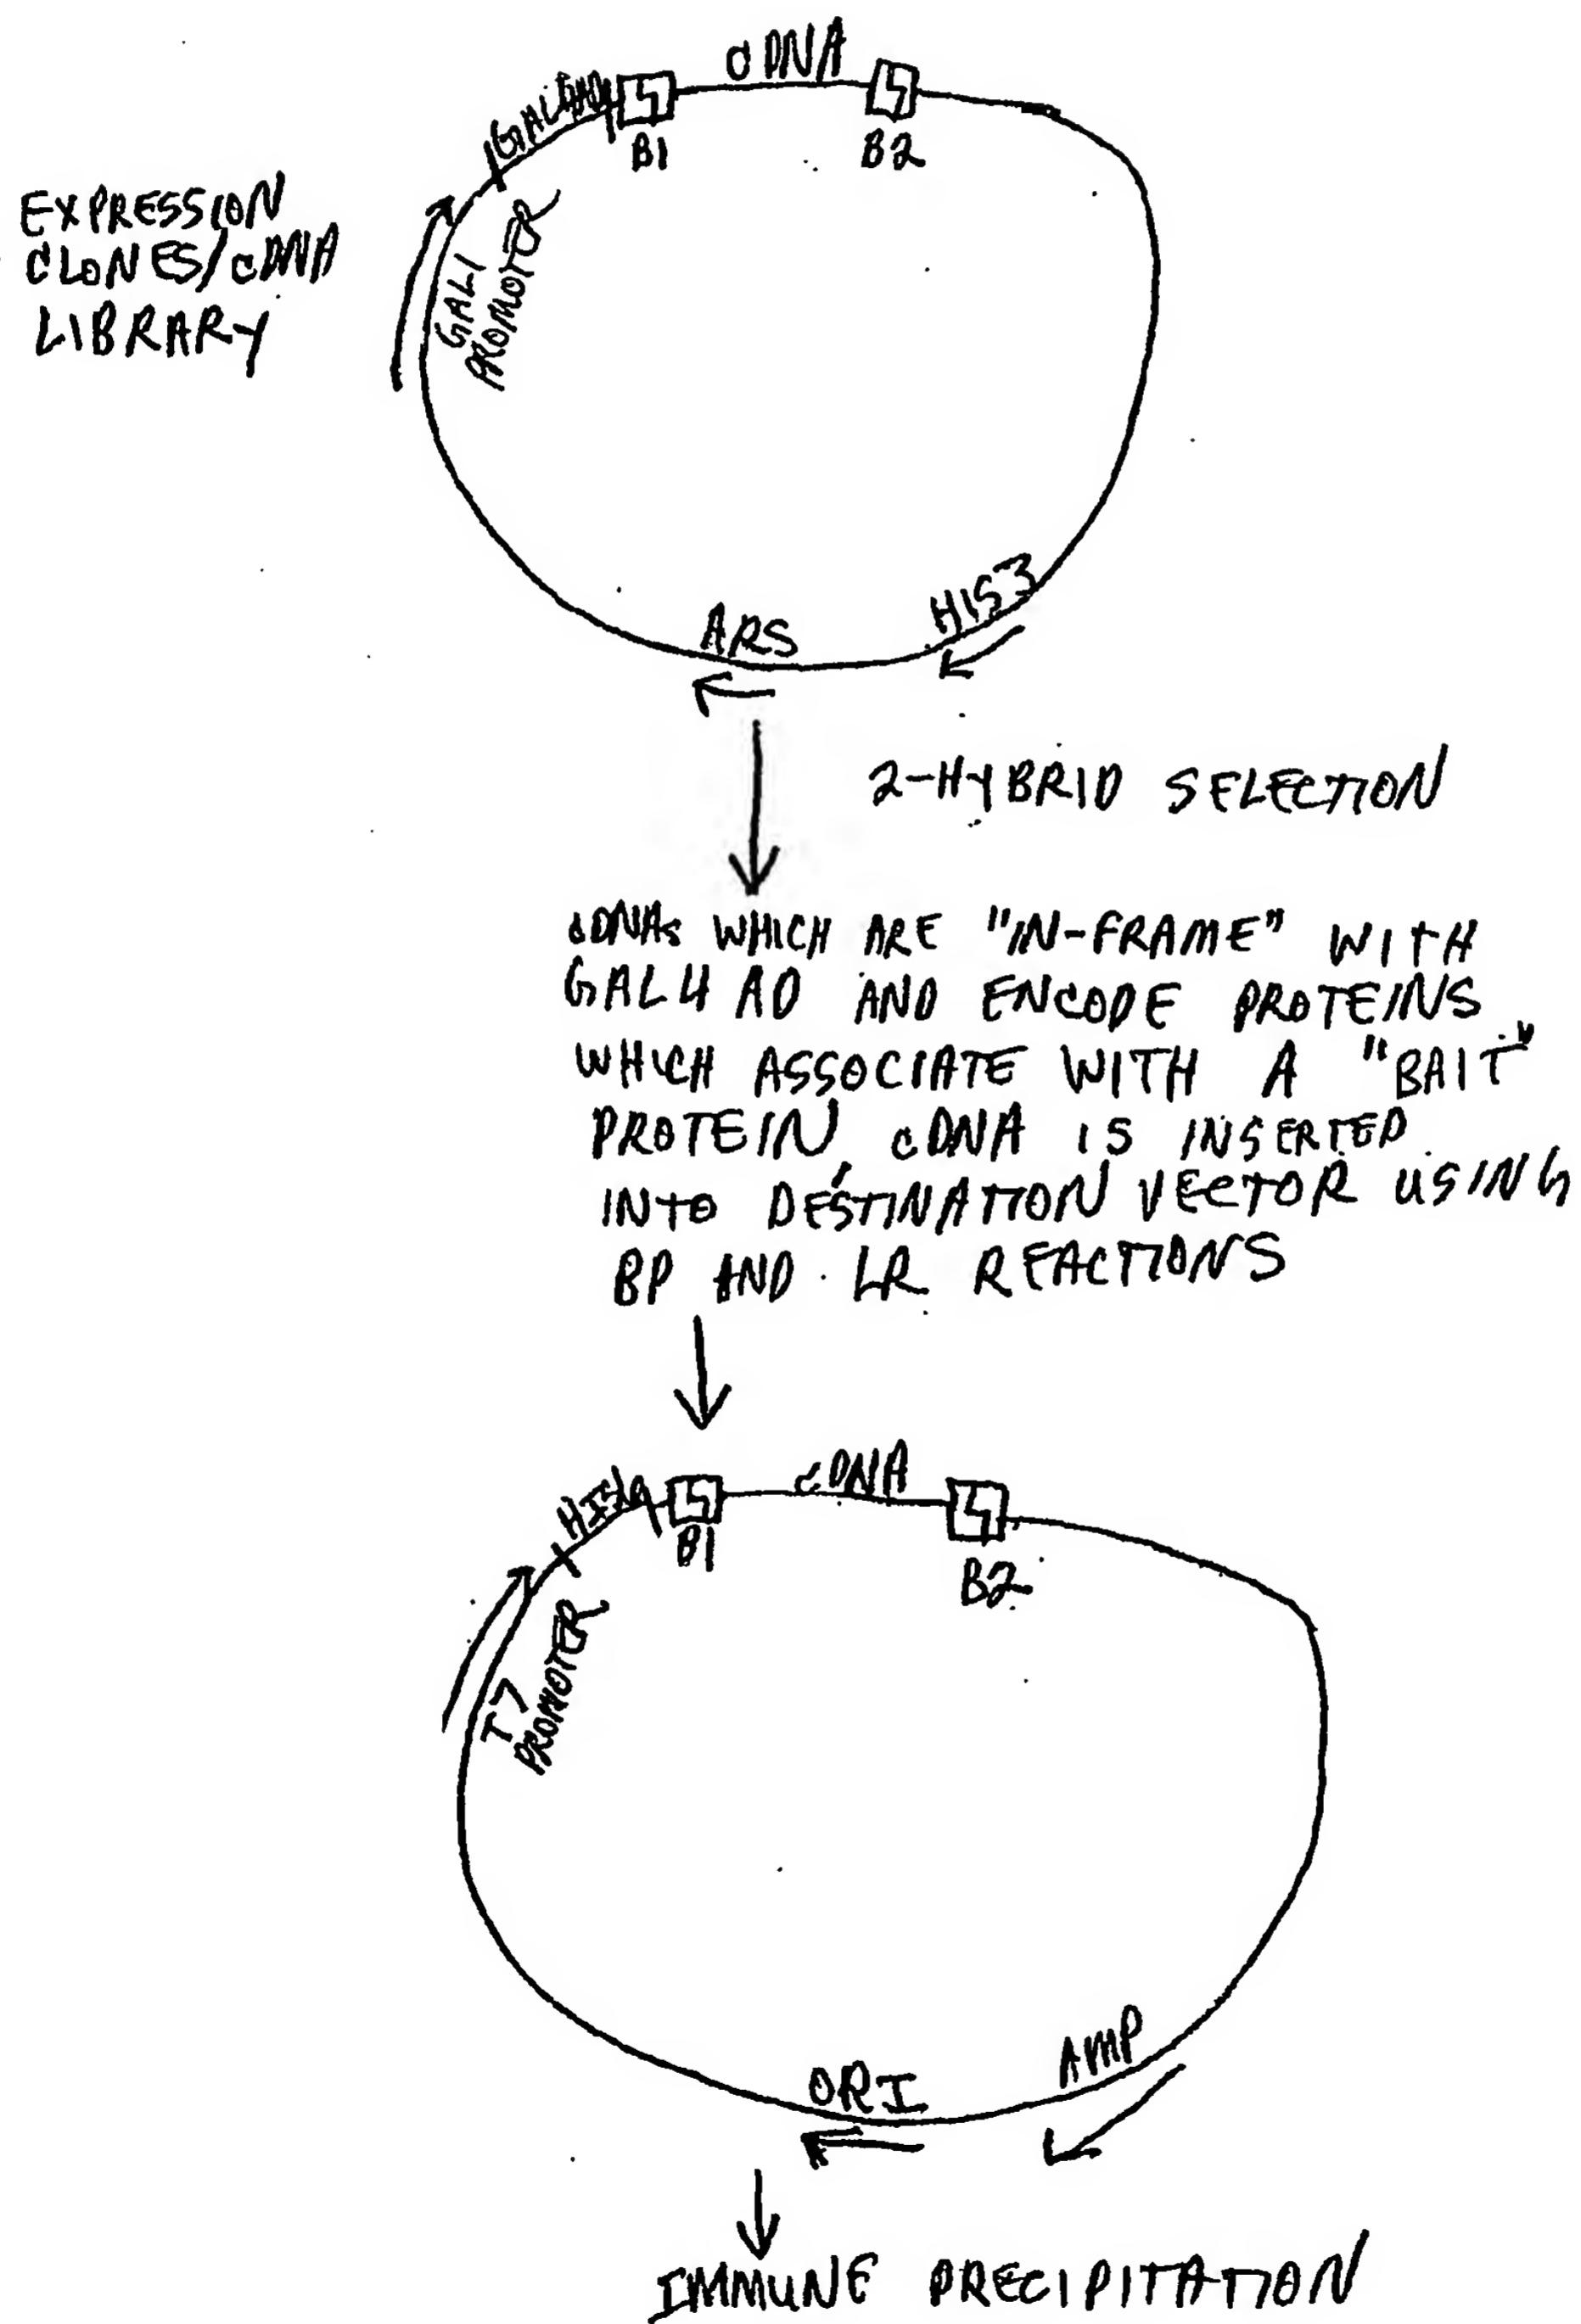 cDNA
B1
B2
EXPRESSION
CLONES/cDNA
LIBRARY
GAL1
PROMOTER
HIS3
ARS
2-HYBRID SELECTION
cDNAs WHICH ARE "IN-FRAME" WITH
GAL4 AD AND ENCODE PROTEINS
WHICH ASSOCIATE WITH A "BAIT"
PROTEIN, cDNA IS INSERTED
INTO DESTINATION VECTOR USING
BP AND LR REACTIONS
cDNA
B1
B2
T7
PROMOTER
AMP
ORI
IMMUNE PRECIPITATION